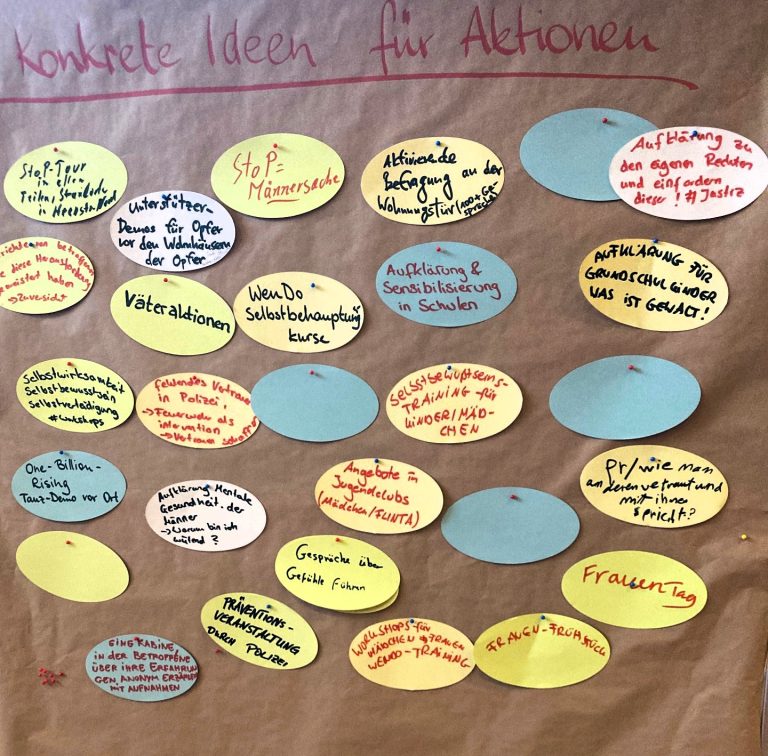 Konkrete Ideen für Aktionen
StoP-Tour
in allen
in
StoP=
Männersache
Aktivierende
Befragung an der
Wohnungstür (100x Ge-
spräche)
Aufklärung zu
den eigenen Rechten
und einfordern
dieser! # Justiz
Unterstützer-
Demos für Opfer
vor den Wohnhäusern
der Opfer
diese Herausforderung
gemeistert haben
→ Zuversicht
Väteraktionen
WenDo
Selbstbehauptung
kurse
Aufklärung &
Sensibilisierung
in Schulen
AUFKLÄRUNG FÜR
GRUNDSCHULKINDER
WAS IST GEWALT!
Selbstwirksamkeit
Selbstbewusstsein
Selbstverteidigung
#workshops
fehlendes Vertrauen
in Polizei!
→ Feuerwehr als
→ Vertrauen schaffen
SELBSTBEWUßTSEINS-
TRAINING für
KINDER/MÄD-
CHEN
One-Billion-
Rising
Tanz-Demo vor Ort
Aufklärung Mentale
Gesundheit der
Männer
→ Warum bin ich
wütend?
Angebote in
Jugendclubs
(Mädchen/FLINTA)
Pr/wie man
anderen vertraut und
mit ihnen
spricht?
Gespräche über
Gefühle führen
Frauentag
PRÄVENTIONS-
VERANSTALTUNG
DURCH POLIZEI
EINE KABINE,
IN DER BETROFFENE
ÜBER IHRE ERFAHRUN
GEN ANONYM ERZÄHLEN
MIT AUFNAHMEN
WORKSHOPS für
MÄDCHEN & FRAUEN
WENDO-TRAINING
FRAUEN-FRÜHSTÜCK